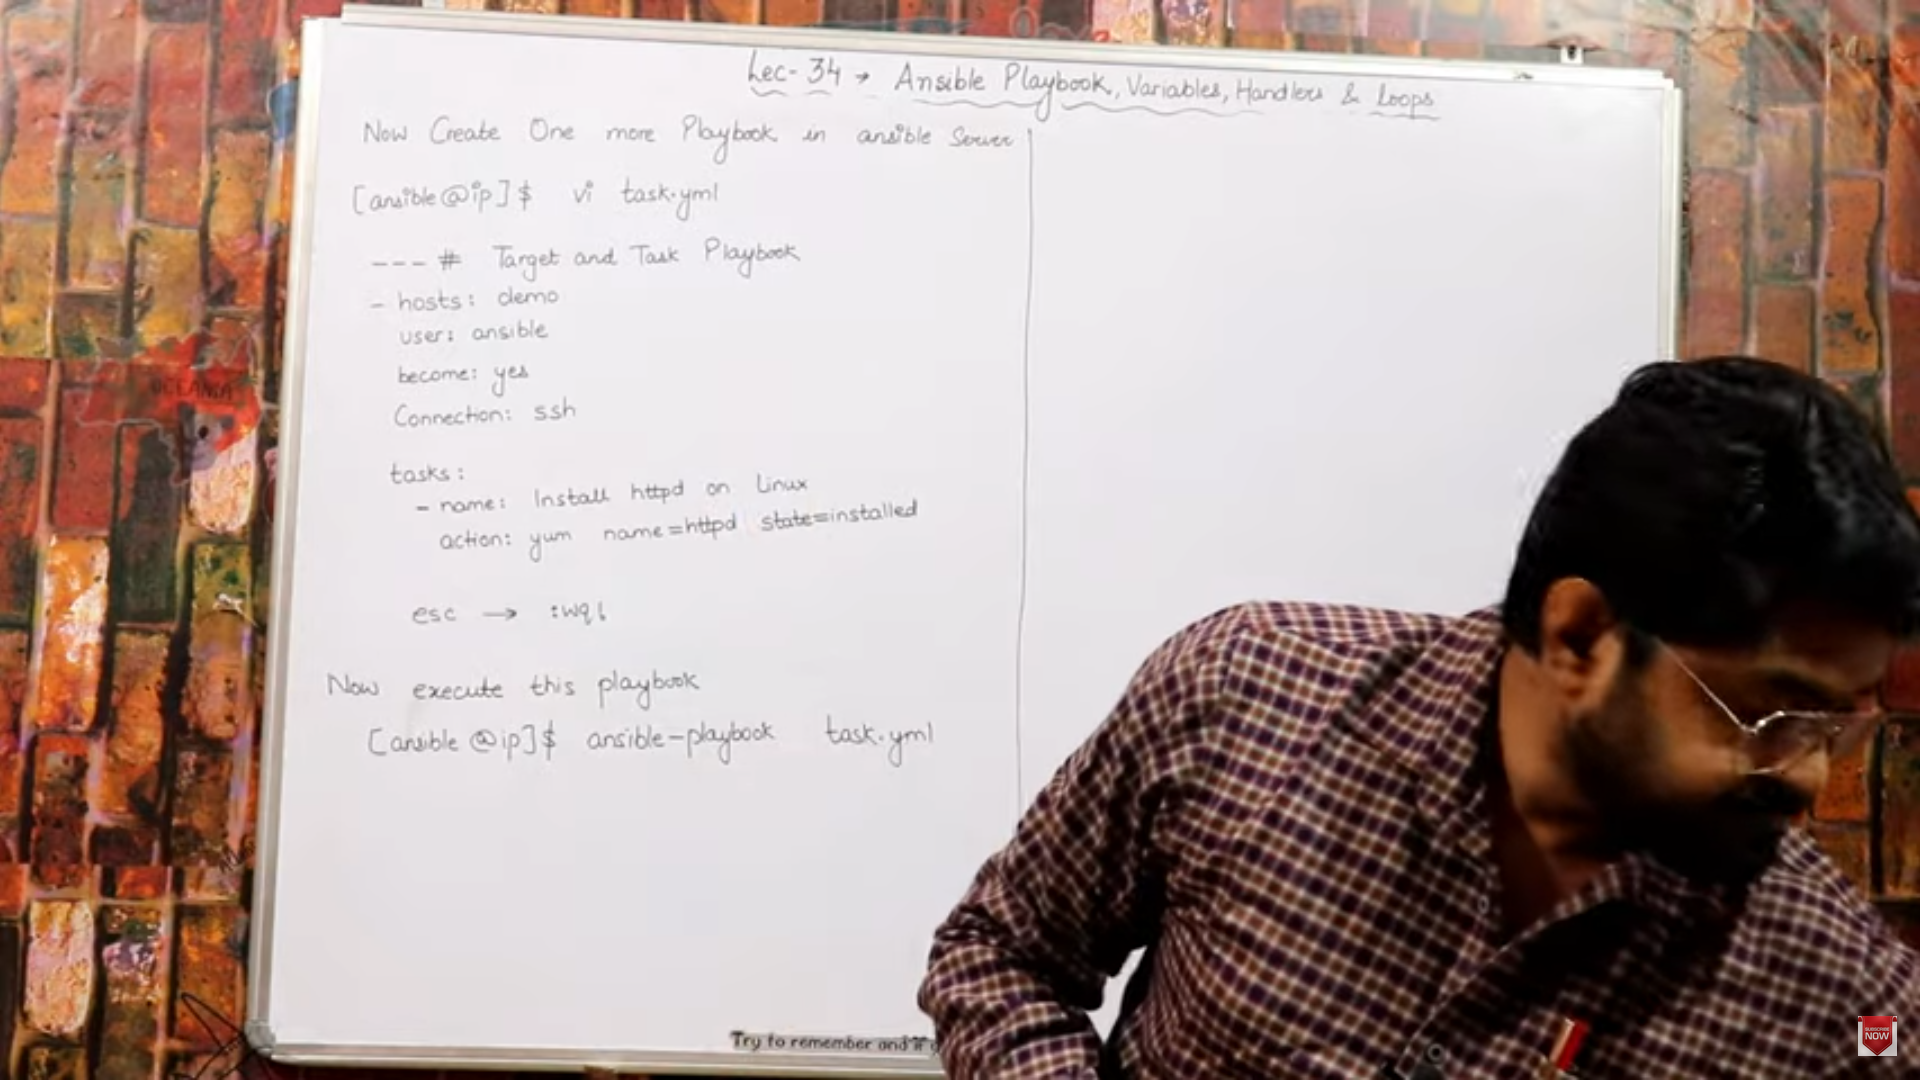 Lec- 34 → Ansible Playbook, Variables, Handlers & Loops
Now Create One more Playbook in ansible Server
[ansible@ip]$ vi task.yml
--- # Target and Task Playbook
- hosts: demo
user: ansible
become: yes
Connection: ssh
tasks:
- name: Install httpd on Linux
action: yum name=httpd state=installed
esc → :wq!
Now execute this playbook
[ansible@ip]$ ansible-playbook task.yml
Try to remember and
OCEANIA
SUBSCRIBE
NOW